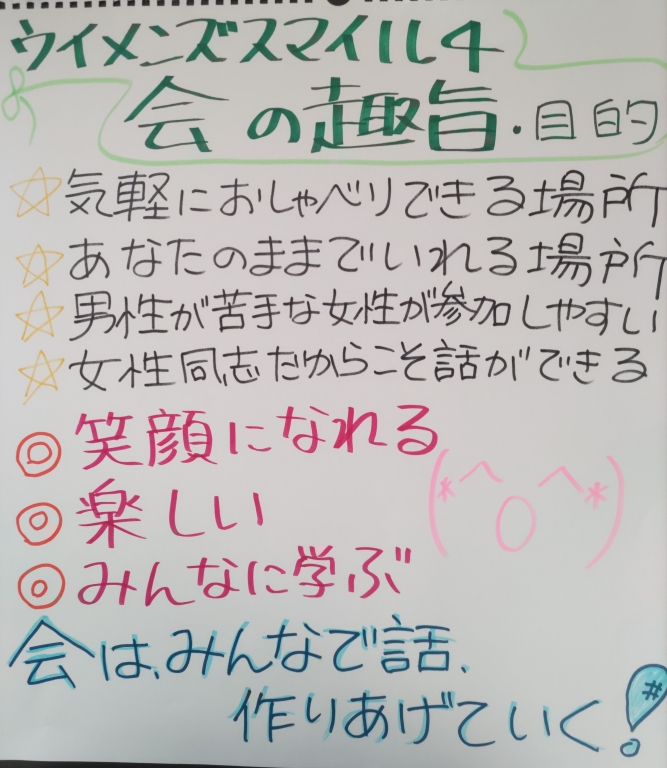 ウイメンズスマイル4
会の趣旨・目的
☆気軽におしゃべりできる場所
☆あなたのままでいれる場所
☆男性が苦手な女性が参加しやすい
☆女性同志だからこそ話ができる
◎笑顔になれる
◎楽しい
◎みんなに学ぶ
(*^O^*)
会は、みんなで話、
作りあげていく!
#